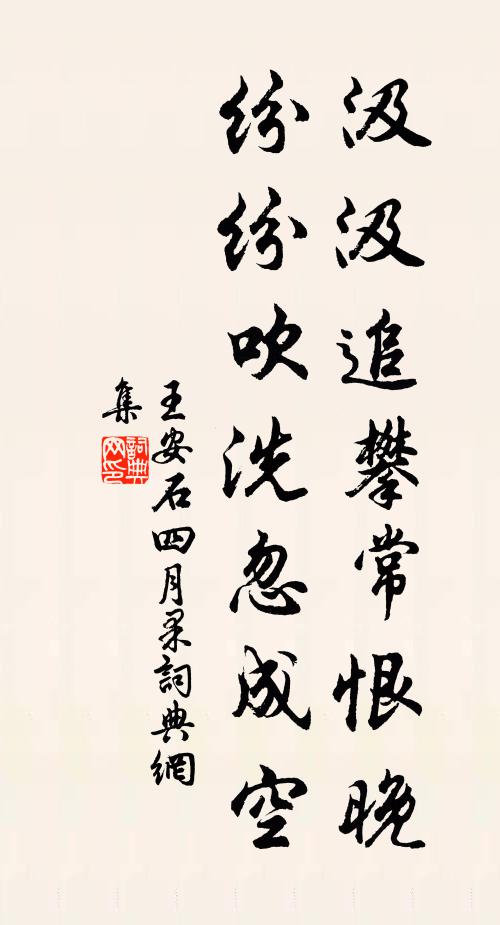 汲汲追攀常恨晚
紛紛吹洗忽成空
王安石四月果詞典網
集
詞典网印